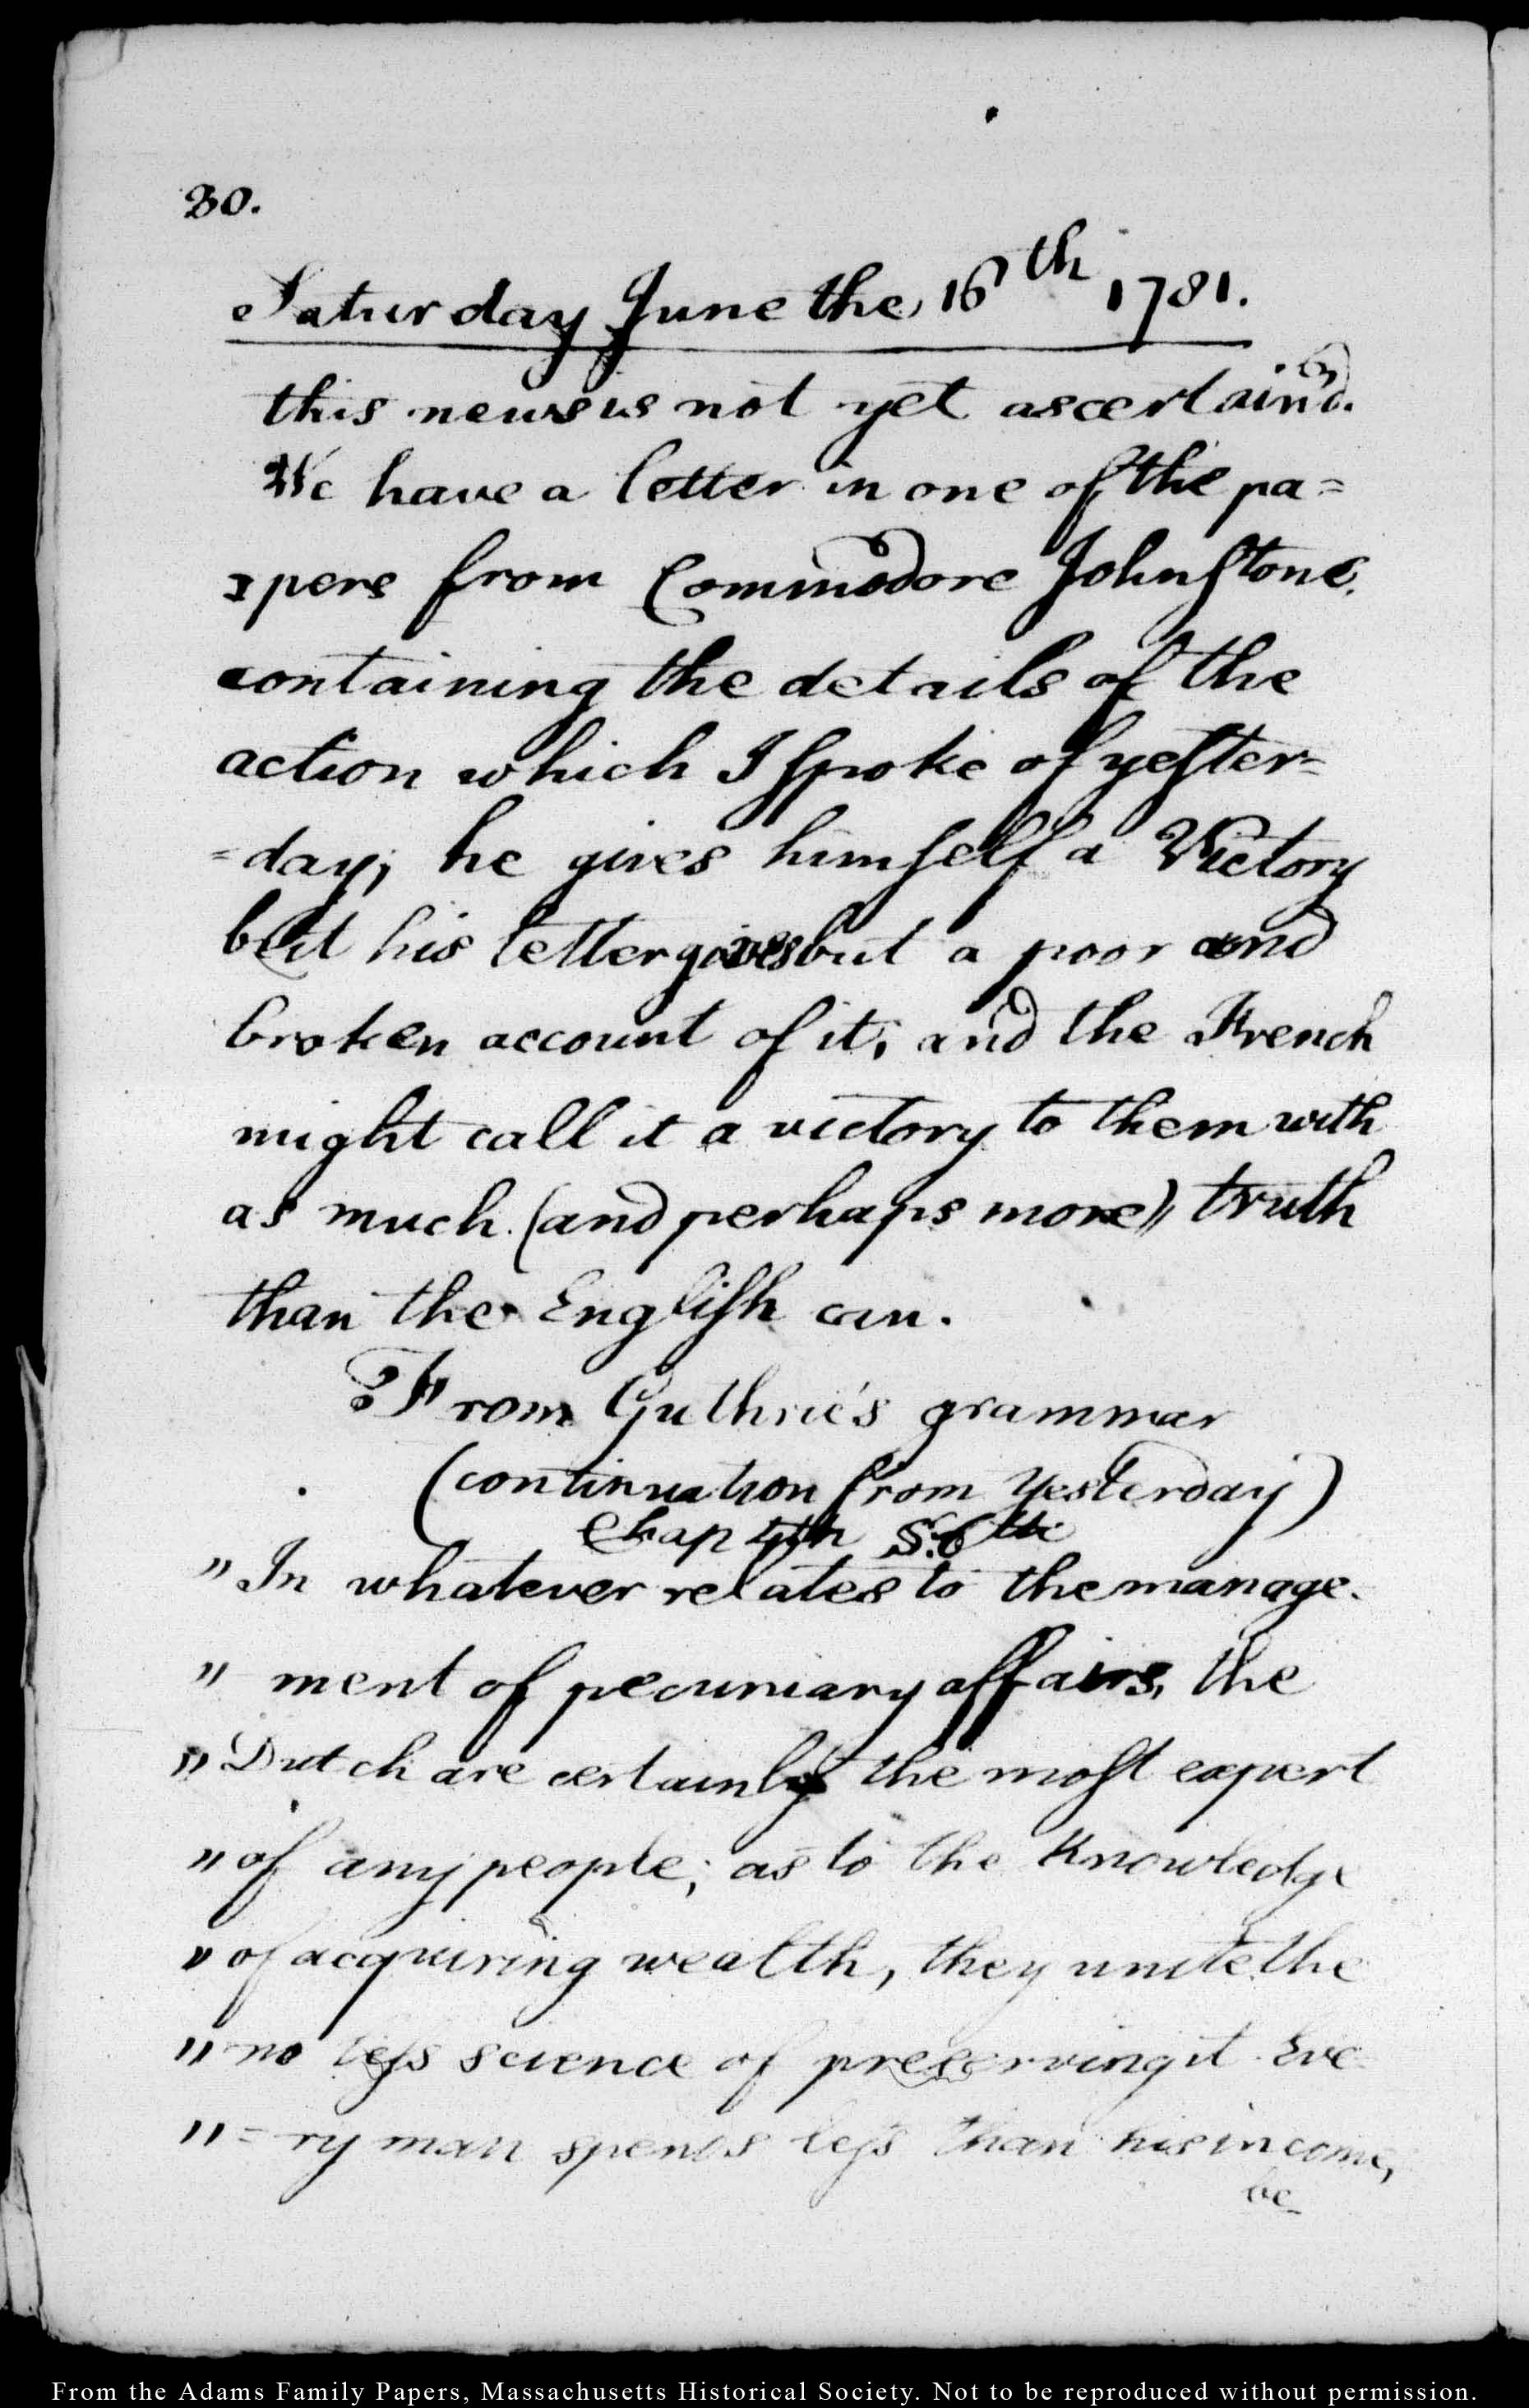 30.
Saturday June the 16th 1781.
this news is not yet ascertain'd.
We have a letter in one of the pa=
=pers from Commodore Johnstone,
containing the details of the
action which I spoke of yester=
=day; he gives himself a Victory
but his letter gives but a poor and
broken account of it, and the French
might call it a victory to them with
as much (and perhaps more) truth
than the English can.
From Guthrie's grammar
(continuation from Yesterday)
Chap 4th S. 6th
" In whatever relates to the manage-
" ment of pecuniary affairs, the
" Dutch are certainly the most expert
" of any people; as to the Knowledge
" of acquiring wealth, they unite the
" no less science of preserving it. Eve
" =ry man spends less than his income,
be
From the Adams Family Papers, Massachusetts Historical Society. Not to be reproduced without permission.